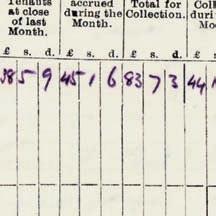 Tenants at close of last Month.
accrued during the Month.
Total for Collection.
Month.
£ s. d. £ s. d. £ s. d. £
5 9 45 1 6 83 7 3 44